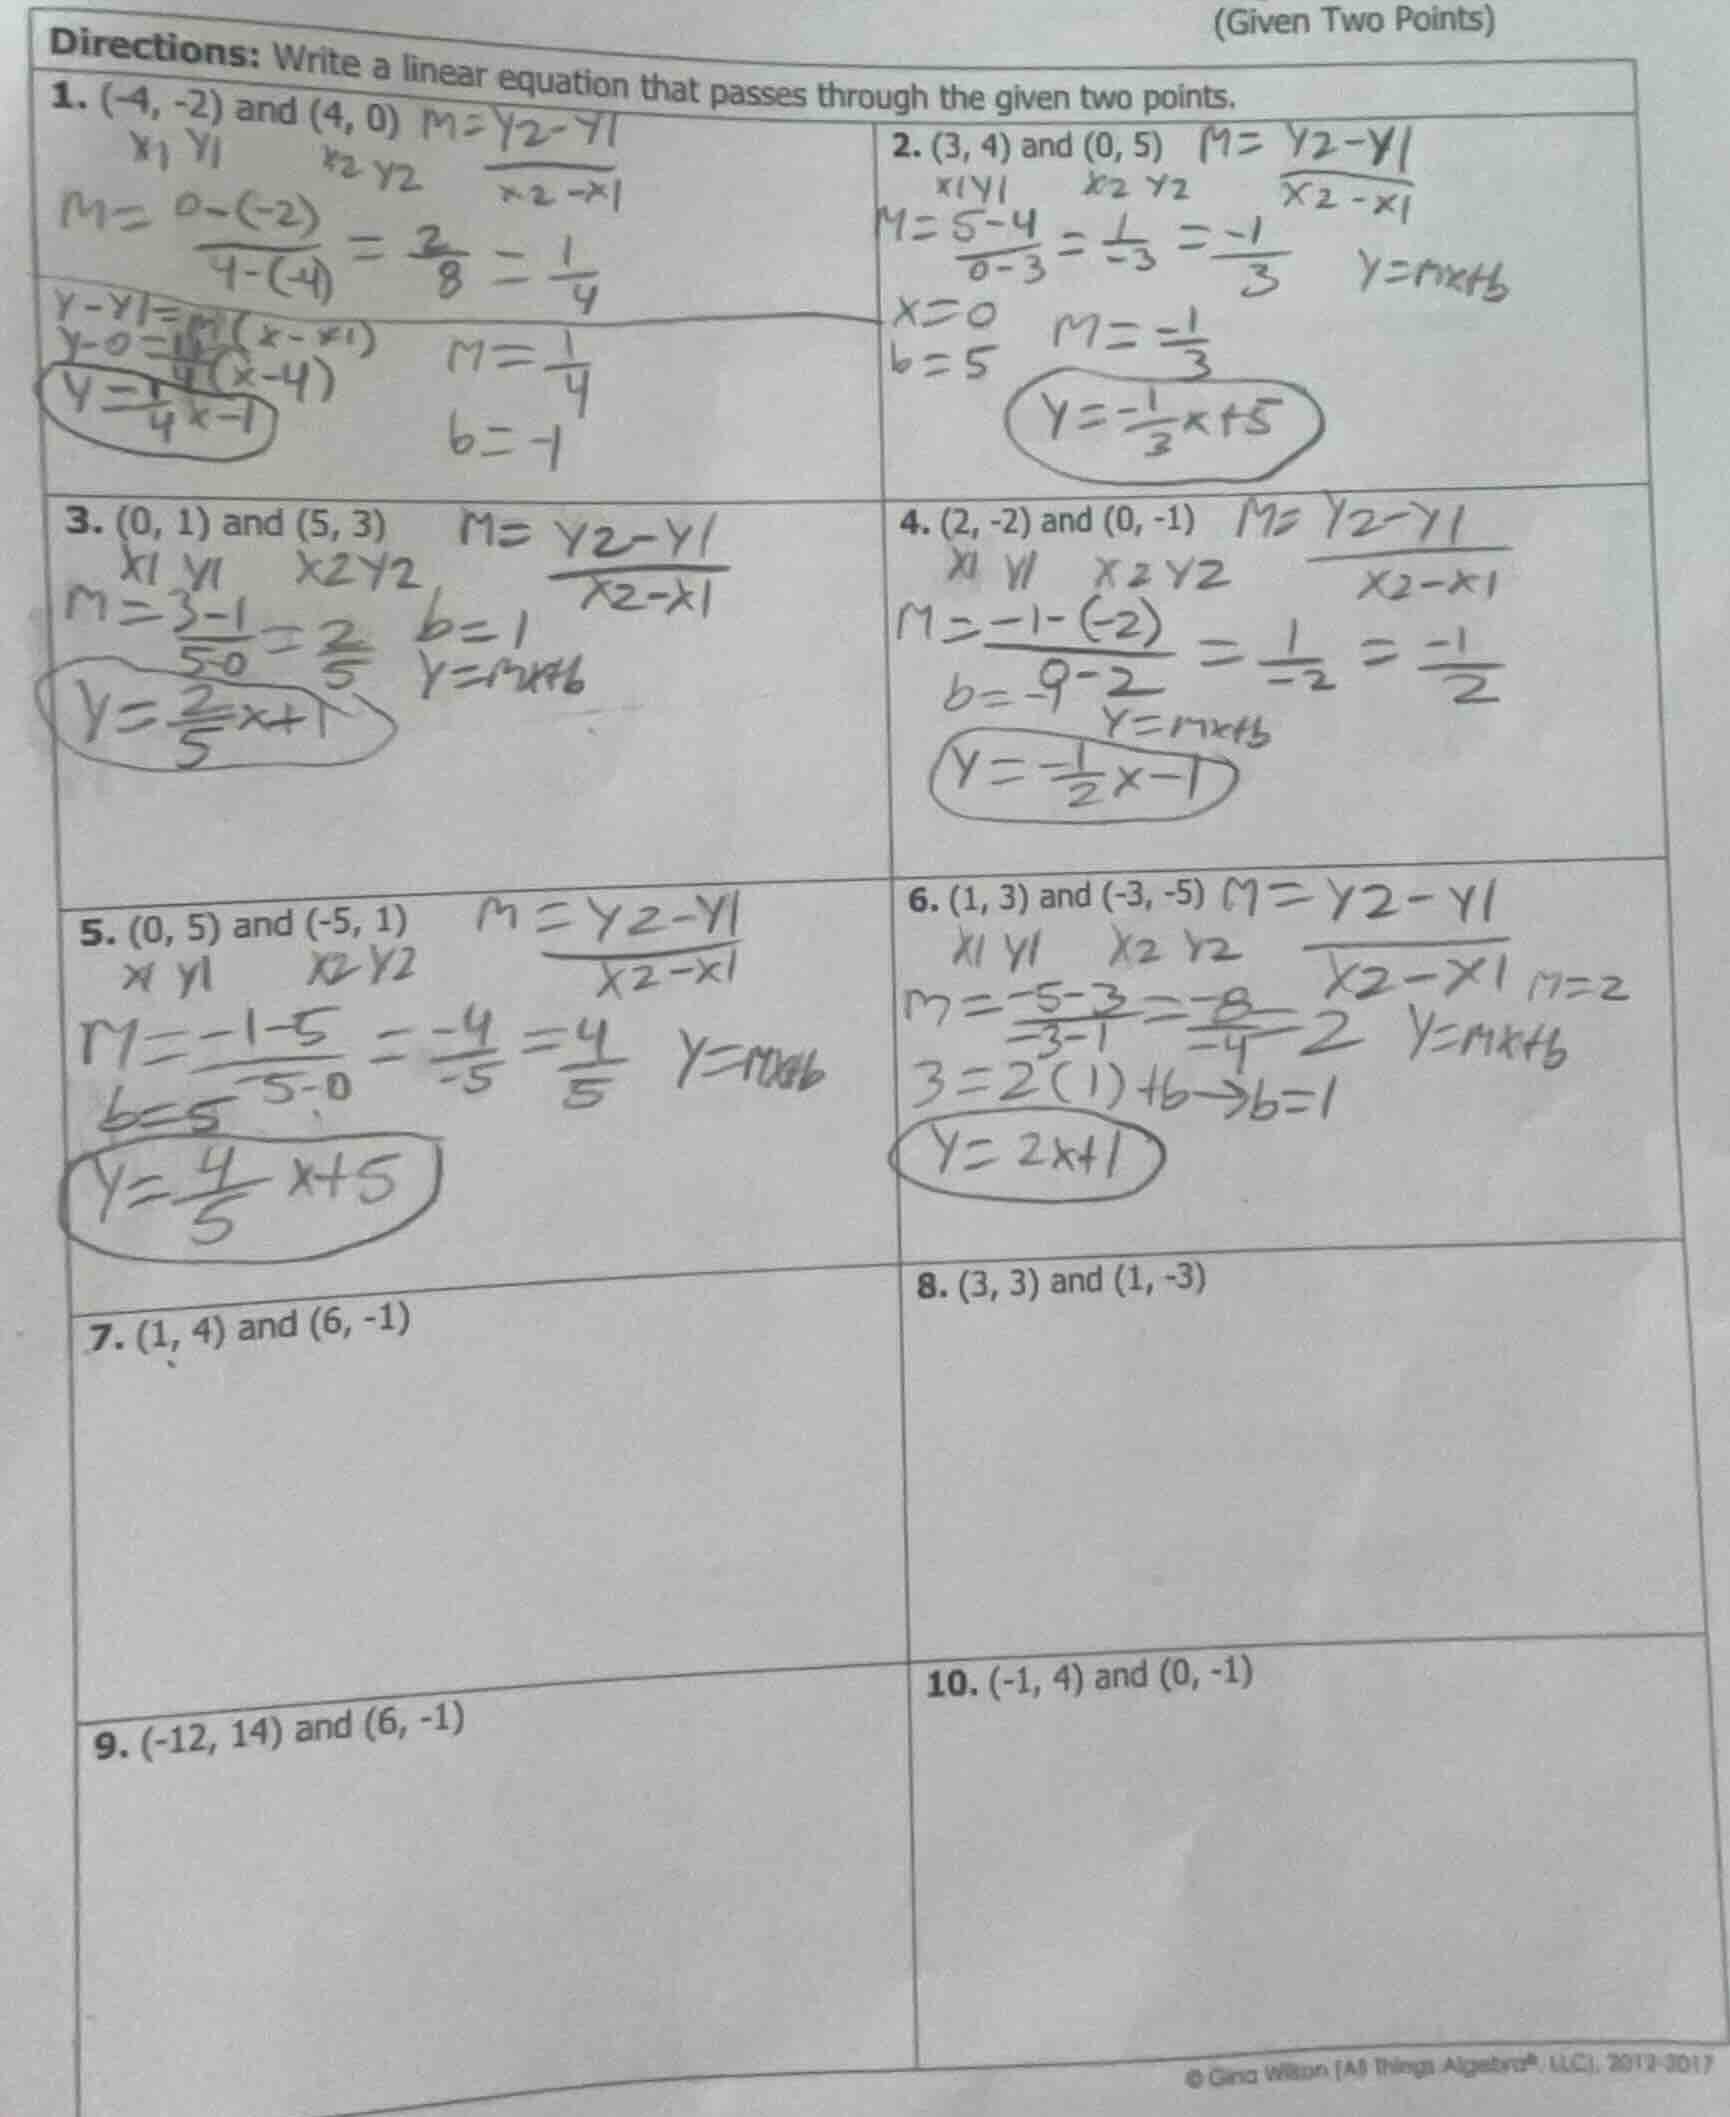 (Given Two Points)
Directions: Write a linear equation that passes through the given two points.
1. (-4, -2) and (4, 0) M = Y2-Y1
X1 Y1 X2 Y2 X2-X1
M = 0-(-2) = 2 = 1
4-(-4) 8 4
Y-Y1=M(X-X1)
Y-0=1/4(X-4) M=1/4
Y=1/4X-1
b=-1
2. (3, 4) and (0, 5) M= Y2-Y1
X1Y1 X2 Y2 X2-X1
M=5-4 = 1 = -1
0-3 -3 3 Y=mx+b
X=0 M=-1/3
b=5
Y=-1/3X+5
3. (0, 1) and (5, 3) M= Y2-Y1
X1 Y1 X2Y2 X2-X1
M=3-1 = 2 b=1
5-0 5 Y=mx+b
Y=2/5x+1
4. (2, -2) and (0, -1) M= Y2-Y1
X1 Y1 X2 Y2 X2-X1
M=-1-(-2) = 1 = -1
0-2 -2 2
b=-
Y=mx+b
Y=-1/2X-1
5. (0, 5) and (-5, 1) M=Y2-Y1
X1 Y1 X2Y2 X2-X1
M=-1-5 = -4 = 4 Y=mx+b
-5-0 -5 5
b=5
Y=4/5 X+5
6. (1, 3) and (-3, -5) M=Y2-Y1
X1 Y1 X2 Y2 X2-X1 M=2
M=-5-3=-8=2 Y=mx+b
-3-1 -4
3=2(1)+b→b=1
Y=2x+1
7. (1, 4) and (6, -1)
8. (3, 3) and (1, -3)
9. (-12, 14) and (6, -1)
10. (-1, 4) and (0, -1)
© Gina Wilson (All Things Algebra®, LLC), 2012-2017